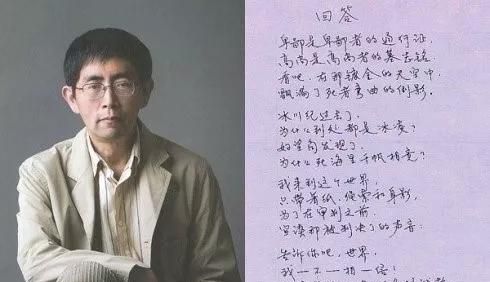 回答
卑鄙是卑鄙者的通行证
高尚是高尚者的墓志铭.
看吧,在那镀金的天空中,
飘满了死者弯曲的倒影.
冰川纪过去了,
为什么到处都是冰凌?
好望角发现了,
为什么死海里千帆相竞?
我来到这个世界,
只带着纸、绳索和身影,
为了在审判之前,
宣读那被判决了的声音:
告诉你吧,世界,
我—不—相—信!